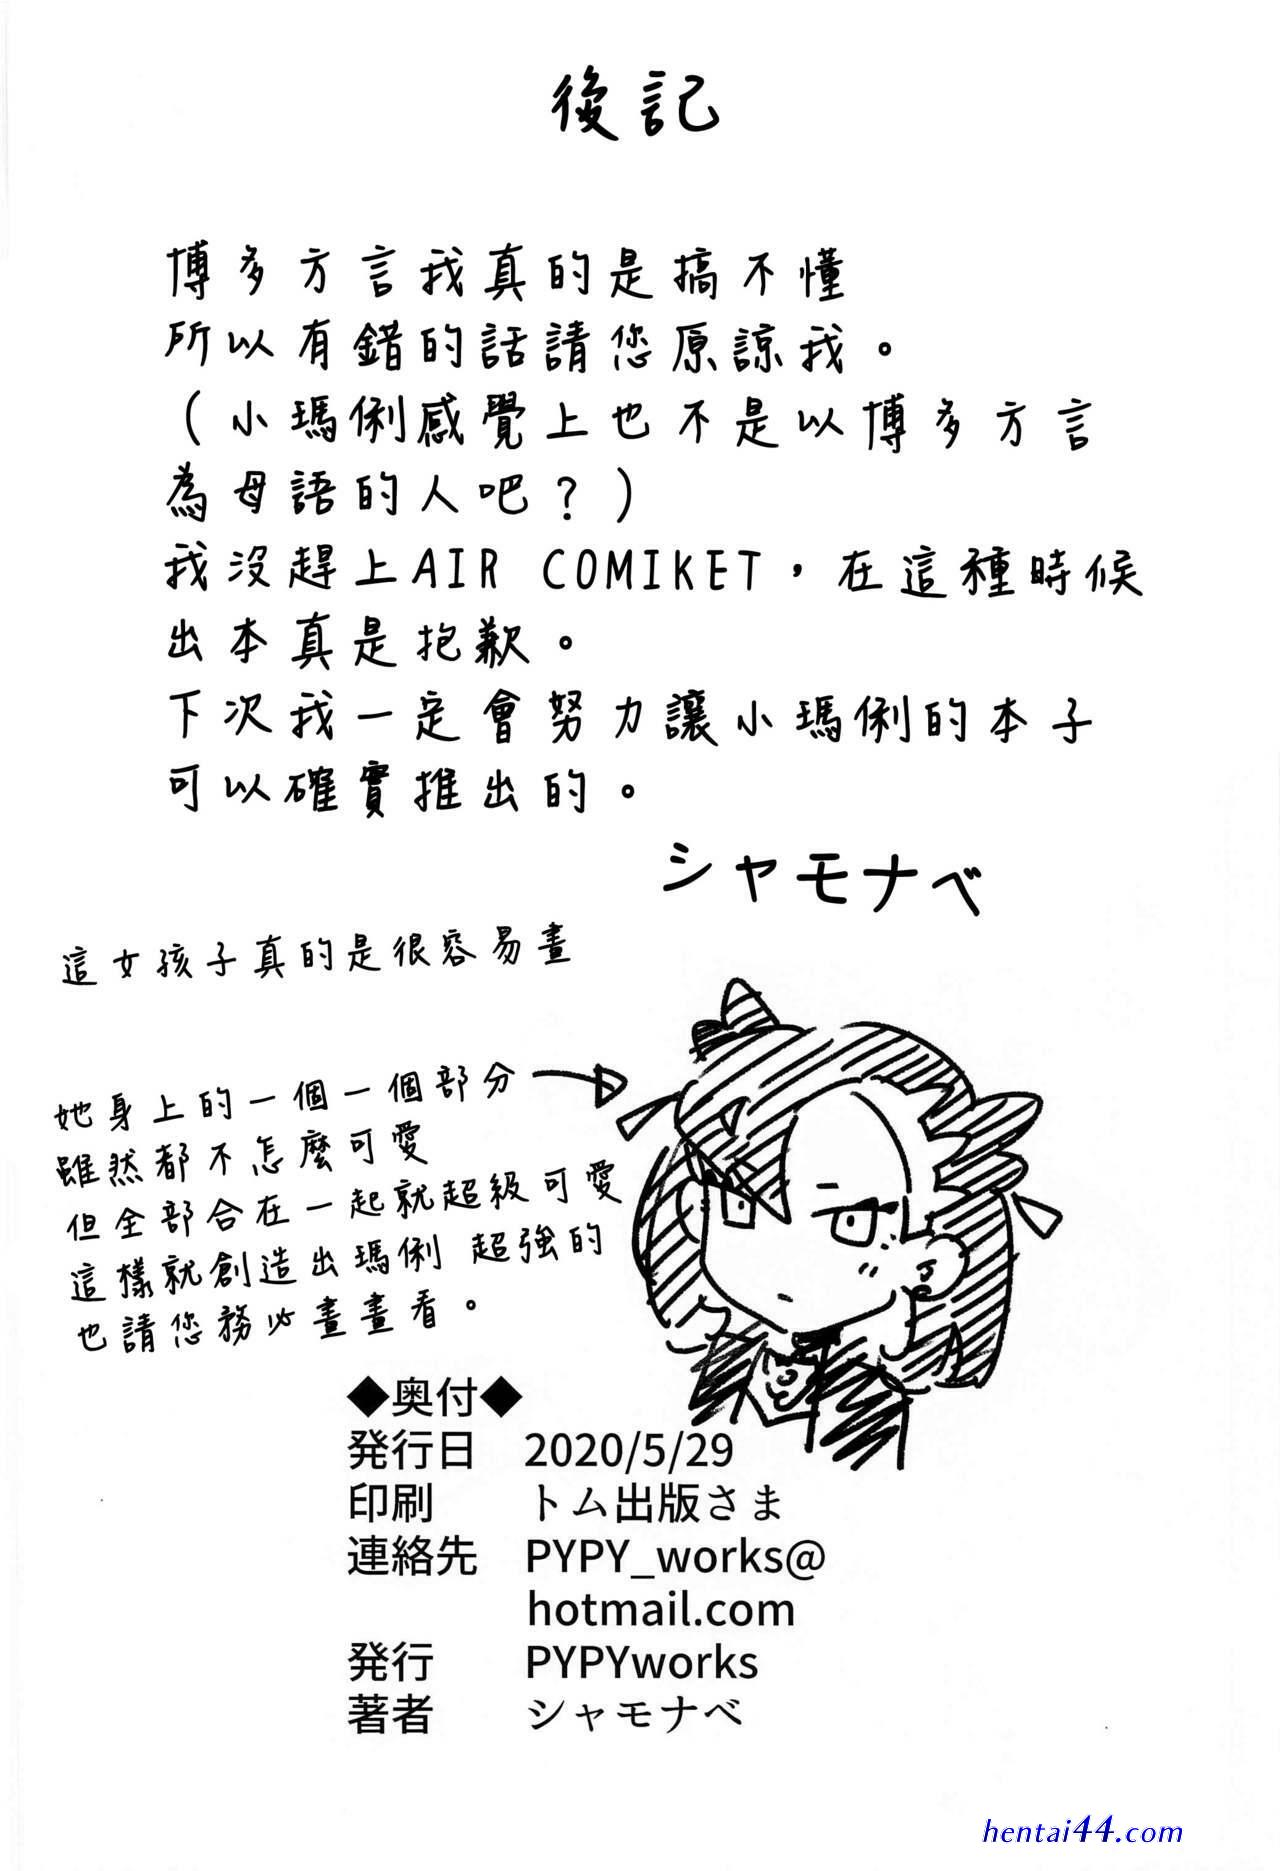 後記
博多方言我真的是搞不懂
所以有錯的話請您原諒我。
（小瑪俐感覺上也不是以博多方言
為母語的人吧？）
我沒趕上AIR COMIKET，在這種時候
出本真是抱歉。
下次我一定會努力讓小瑪俐的本子
可以確實推出的。
シャモナベ
這女孩子真的是很容易畫
她身上的一個一個部分
雖然都不怎麼可愛
但全部合在一起就超級可愛
這樣就創造出瑪俐 超強的
也請您務必畫畫看。
◆奥付◆
発行日 2020/5/29
印刷 トム出版さま
連絡先 PYPY_works@
hotmail.com
発行 PYPYworks
著者 シャモナベ
hentai44.com